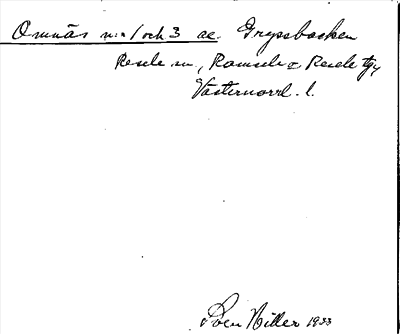 Omnäs n:r 1 och 3 ae. Gryssbacken
Resele sn, Ramsele o Resele tg,
Västernorrl. l.
Sven Hiller 1933